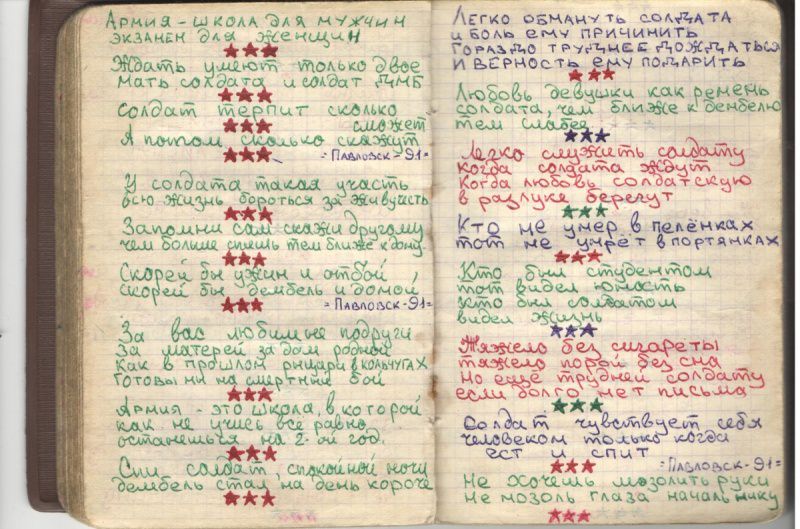 Армия - школа для мужчин
экзамен для женщин
Ждать умеют только двое
мать солдата и солдат ДМБ
Солдат терпит сколько
сможет
А потом сколько скажут
= Павловск - 91 =
У солдата такая участь
всю жизнь бороться за живучесть
Запомни сам скажи другому
чем больше спишь тем ближе к дому.
Скорей бы ужин и отбой,
скорей бы дембель и домой
= Павловск - 91 =
За вас любимые подруги
За матерей за дом родной
Как в прошлом рыцари в кольчугах
Готовы мы на смертный бой
Армия - это школа, в которой
как не учись все равно
останешься на 2-ой год.
Спи солдат, спокойной ночи
дембель стал на день короче
Легко обмануть солдата
и боль ему причинить
Гораздо труднее дождаться
и верность ему подарить
Любовь девушки как ремень
солдата, чем ближе к дембелю
тем слабее
Легко служить солдату
когда солдата ждут
Когда любовь солдатскую
в разлуке берегут
Кто не умер в пелёнках
тот не умрёт в портянках
Кто был студентом
тот видел юность
Кто был солдатом
видел жизнь
Тяжело без сигареты
тяжело порой без сна
Но ещё трудней солдату
если долго нет письма
Солдат чувствует себя
человеком только когда
ест и спит
= Павловск - 91 =
Не хочешь мозолить руки
не мозоль глаза начальнику